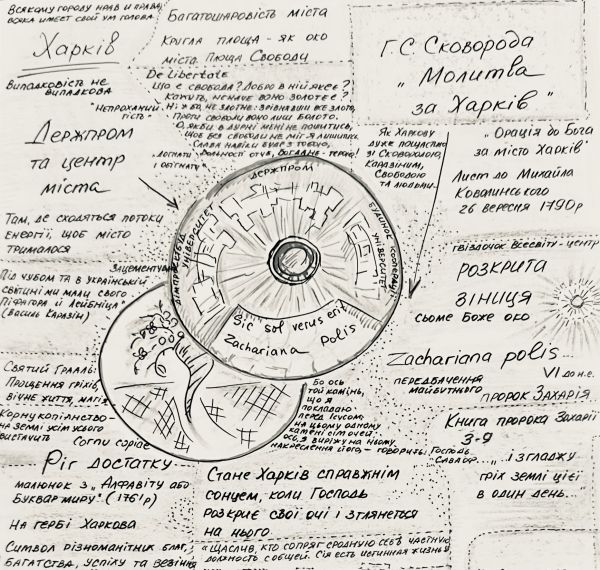 Всякому городу нрав и права;
всяка имеет свой ум голова
Харків
Випадковість не
випадкова
"Непроханий
гість"
Держпром
та центр
міста
Там, де сходяться потоки
енергії, щоб місто
трималося
Зацементував
Під чубом та в українській
свитині ми мали свого
Піфагора й Лейбніца"
(Василь Каразін)
Святий Грааль:
Прощення гріхів,
вічне життя, магія
Корнукопіанство -
на землі усім усього
вистачить
Cornu copiae
Ріг достатку
малюнок з „Алфавіту або
Буквар миру" (1761р)
На гербі Харкова
Символ різноманітних благ,
багатства, успіху та везіння
Багатошаровість міста
Кругла площа - як око
міста Площа Свободи
De Libertate
Що є свобода? Добро в ній яке є?
Кажуть, неначе воно золотеє?
Ні ж бо, не злотне: зрівнявши все злото,
Проти свободи воно лиш болото.
О, якби в дурні мені не пошитись,
Щоб без свободи не міг я лишитись.
Слава навіки буде з тобою,
Вольності отче, Богдане-герою!
„догнати
і обігнати"
Держпром
Університет
Дім проєктів
Будинок кооперації
Університет
Sic sol verus erit
Zachariana Polis
Г.С. Сковорода
„Молитва
за Харків"
Як Харкову
дуже пощастило
зі Сковородою,
Каразіним,
Свободою
та людьми...
„Орація до Бога
за місто Харків"
Лист до Михайла
Ковалинського
26 вересня 1790р
гвіздочок Всесвіту - центр
розкрита
зіниця
сьоме Боже око
Zachariana polis...
VI до н.е.
передбачення
майбутнього
пророк Захарія
Книга пророка Захарії
3-9
„... і згладжу
гріх землі цієї
в один день...
Бо ось
той камінь,
що я
покладаю
перед Ісусом;
на цьому одному
камені сім очей;
ось, я виріжу на ньому
накреслення його - говорить Господь
Саваоф...
Стане Харків справжнім
сонцем, коли Господь
розкриє свої очі і зглянеться
на нього
«Щаслив, кто сопряг сродную себѣ частную
должность с общей. Сія есть истинная жизнь»